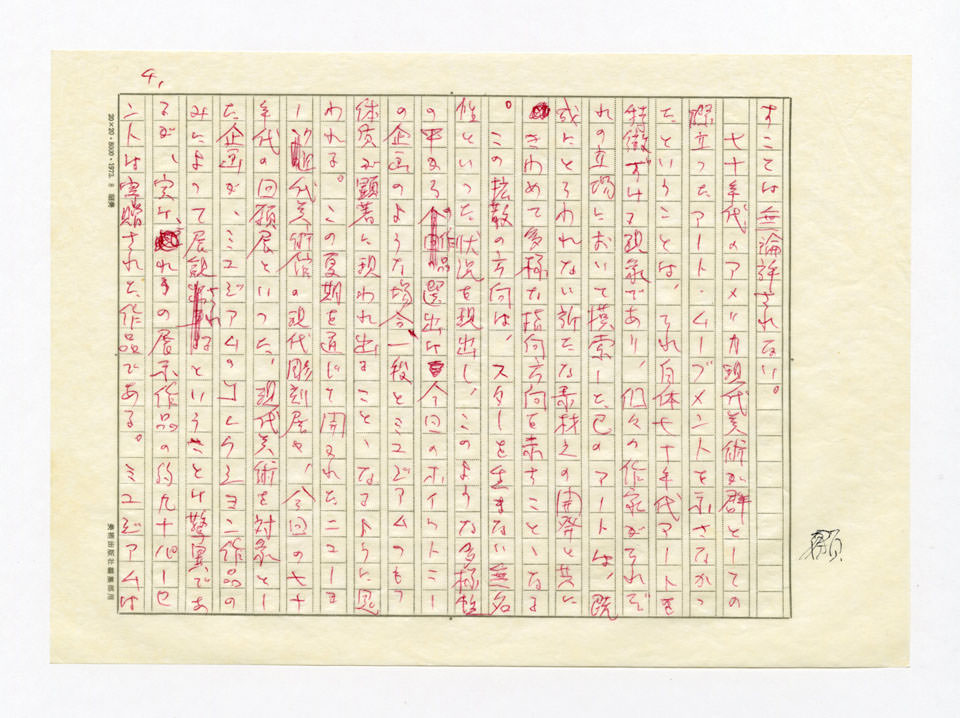 4,
すことでは無論許されない。
七十年代のアメリカ現代美術が群としての
際立ったアート・ムーブメントを示さなかっ
たということは、それ自体七十年代アートを
特徴ずける現象であり、個々の作家がそれぞ
れの立場において模索した己のアートは、既
成にとらわれない新たな素材えの開発と共に
きわめて多様な指向方向を示すことゝなる
。この拡散の方向は、スターを生まない無名
性といった状況を現出し、このような多様性
の中なる作品選出は今回のホイットニー
の企画のような場合一段とミュゼアムのもつ
体質が顕著に現われ出ることゝなるように思
われる。この夏期を通じて開かれたニューヨ
ー近代美術館の現代彫刻展や、今回の七十
年代の回顧展といった、現代美術を対象とし
た企画が、ミュゼアムのコレクション作品の
みによって展観されるということは驚異であ
るが、実は、これ等の展示作品の約九十パーセ
ントは寄贈された作品である。ミュゼアムは
20×20・8000・1973.
東網出版社編集部用